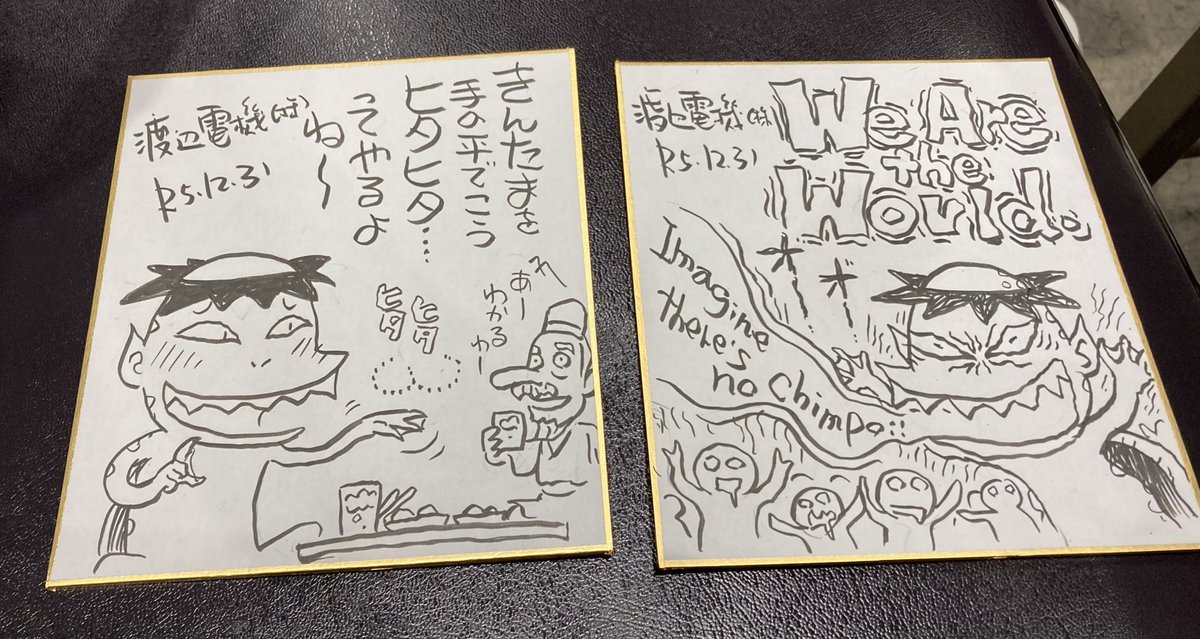 きんたまを
手の平でこう
ヒタヒタ…
してやるよ
ね〜
渡辺電機(株)
R5.12.31
ヒタ
ヒタ
あー
わかるわー
渡辺電機(株)
R5.12.31
We Are
the
World。
オ
オ
Imagine
there's
no Chimpo!!